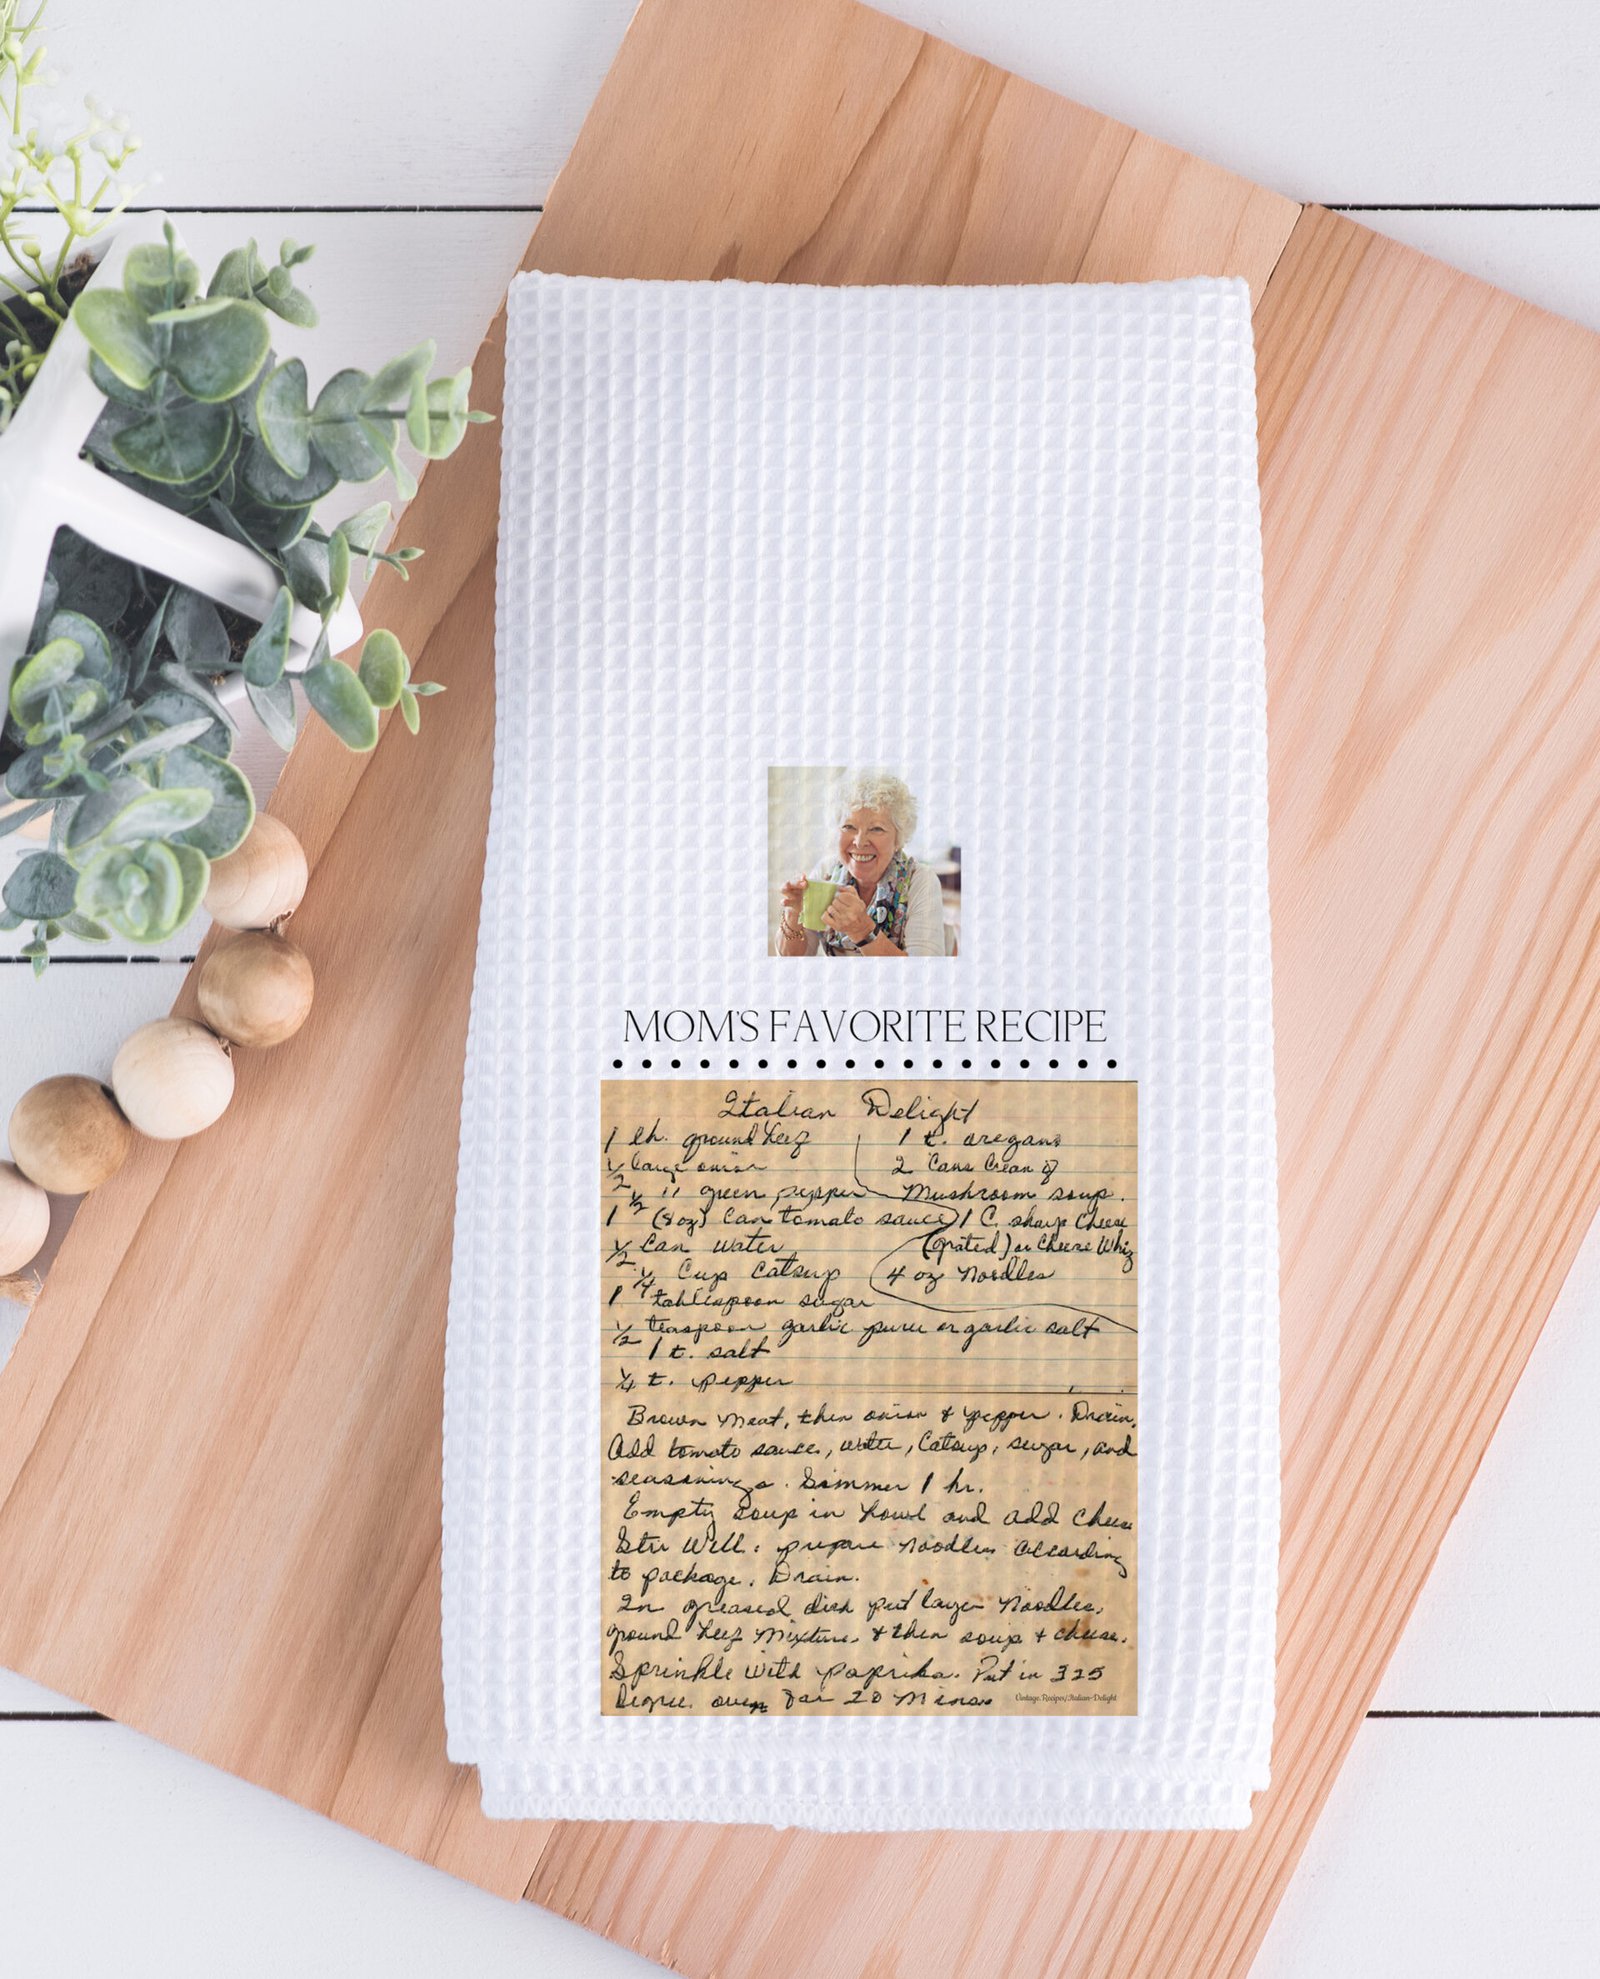 MOM'S FAVORITE RECIPE
Italian Delight
1 lb. ground beef
1/2 large onion
1/2 " green pepper
1 (8oz) can tomato sauce
1/2 can water
1/4 cup catsup
1 tablespoon sugar
1/2 teaspoon garlic puree or garlic salt
1 t. salt
1/4 t. pepper
1 t. oregano
2 cans cream of
Mushroom soup.
1 C. sharp cheese
(grated) or Cheese Whiz
4 oz noodles
Brown meat, then onion & pepper. Drain,
add tomato sauce, water, catsup, sugar, and
seasonings. Simmer 1 hr.
Empty soup in bowl and add cheese
Stir well. prepare noodles according
to package. Drain.
In greased dish put layer noodles,
ground beef mixture, & then soup & cheese.
Sprinkle with paprika. Put in 325
degree oven for 20 mins.
Vintage.Recipes/Italian-Delight